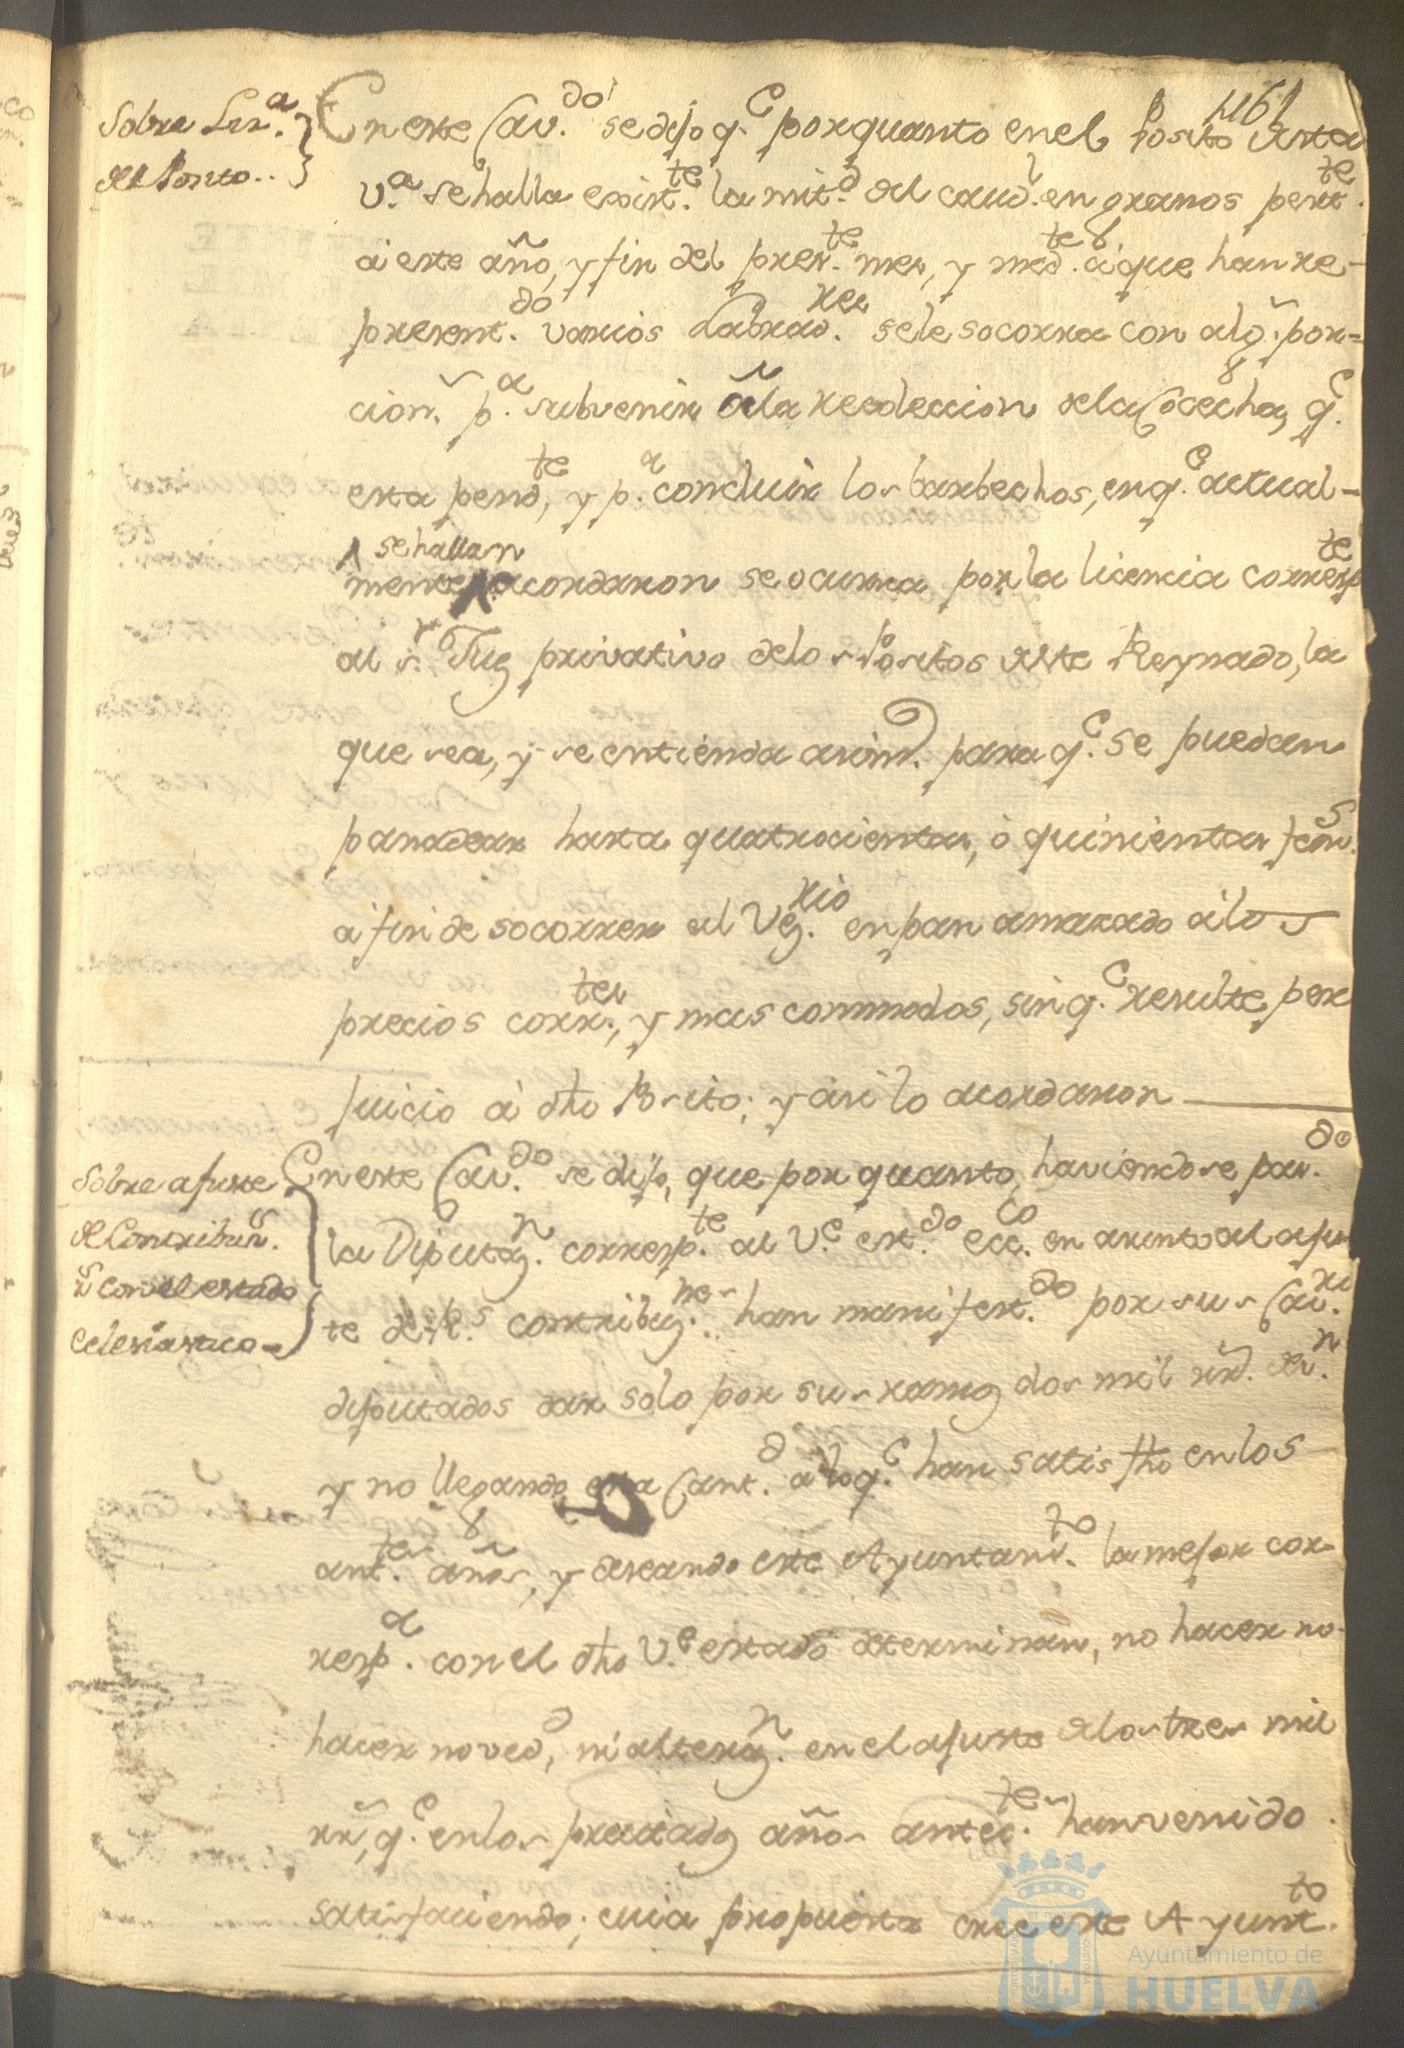 461
Sobre Liz.ª
del Posito..
En este Cav.do se dijo q.e por quanto en el Posito desta
V.ª se halla exist.te la mit.d del caud.l en granos pert.te
á este año, y fin del pres.te mes, y med.te á que han re-
present.do varios Labrad.res se le socorra con alg.ⁿ por=
cion, p.ª subvenir á la recoleccion de la Cosecha, q.e
esta pend.te, y p.ª concluir los barbechos, en q.e actual-
se hallan
mente acordaron se ocurra por la licencia corresp.te
al s.r Juez privativo de los Positos deste Reynado, la
que sea, y se entienda asim.o para q.e se puedan
panadear hasta quatrocientas, ó quinientas fan.s
a fin de socorrer al Vez.rio en pan amazado á los
precios corr.tes, y mas commodos, sin q.e resulte per
juicio á dho Posito; y asi lo acordaron
Sobre ajuste
de Contribuz.n
con el estado
eclesiastico
En este Cav.do se dijo, que por quanto, haviendose pas.do
la Diputaz.n corresp.te al V.e est.do ecc.co en asunto al ajus
te de R.s contribuz.nes han manifest.do por sus Cav.ros
diputados dar solo por su ramo dos mil rr.s de v.n
y no llegando esta Cant.d a lo q.e han satisfho en los
ant.tes años, y deseando este Ayuntam.to la mejor cor-
resp.ª con el dho V.e estado determinan, no hacer no-
hacer noved.d, ni alteraz.n en el ajuste de los tres mil
rr.s, q.e en los precitados años antec.tes han venido
satisfaciendo; cuia propuesta cree este Ayunt.to
Ayuntamiento de
HUELVA